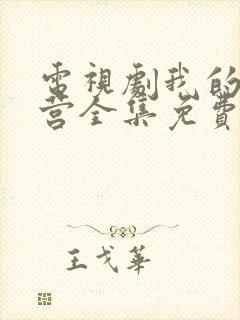 電視劇我的
营全集免費
王戈華